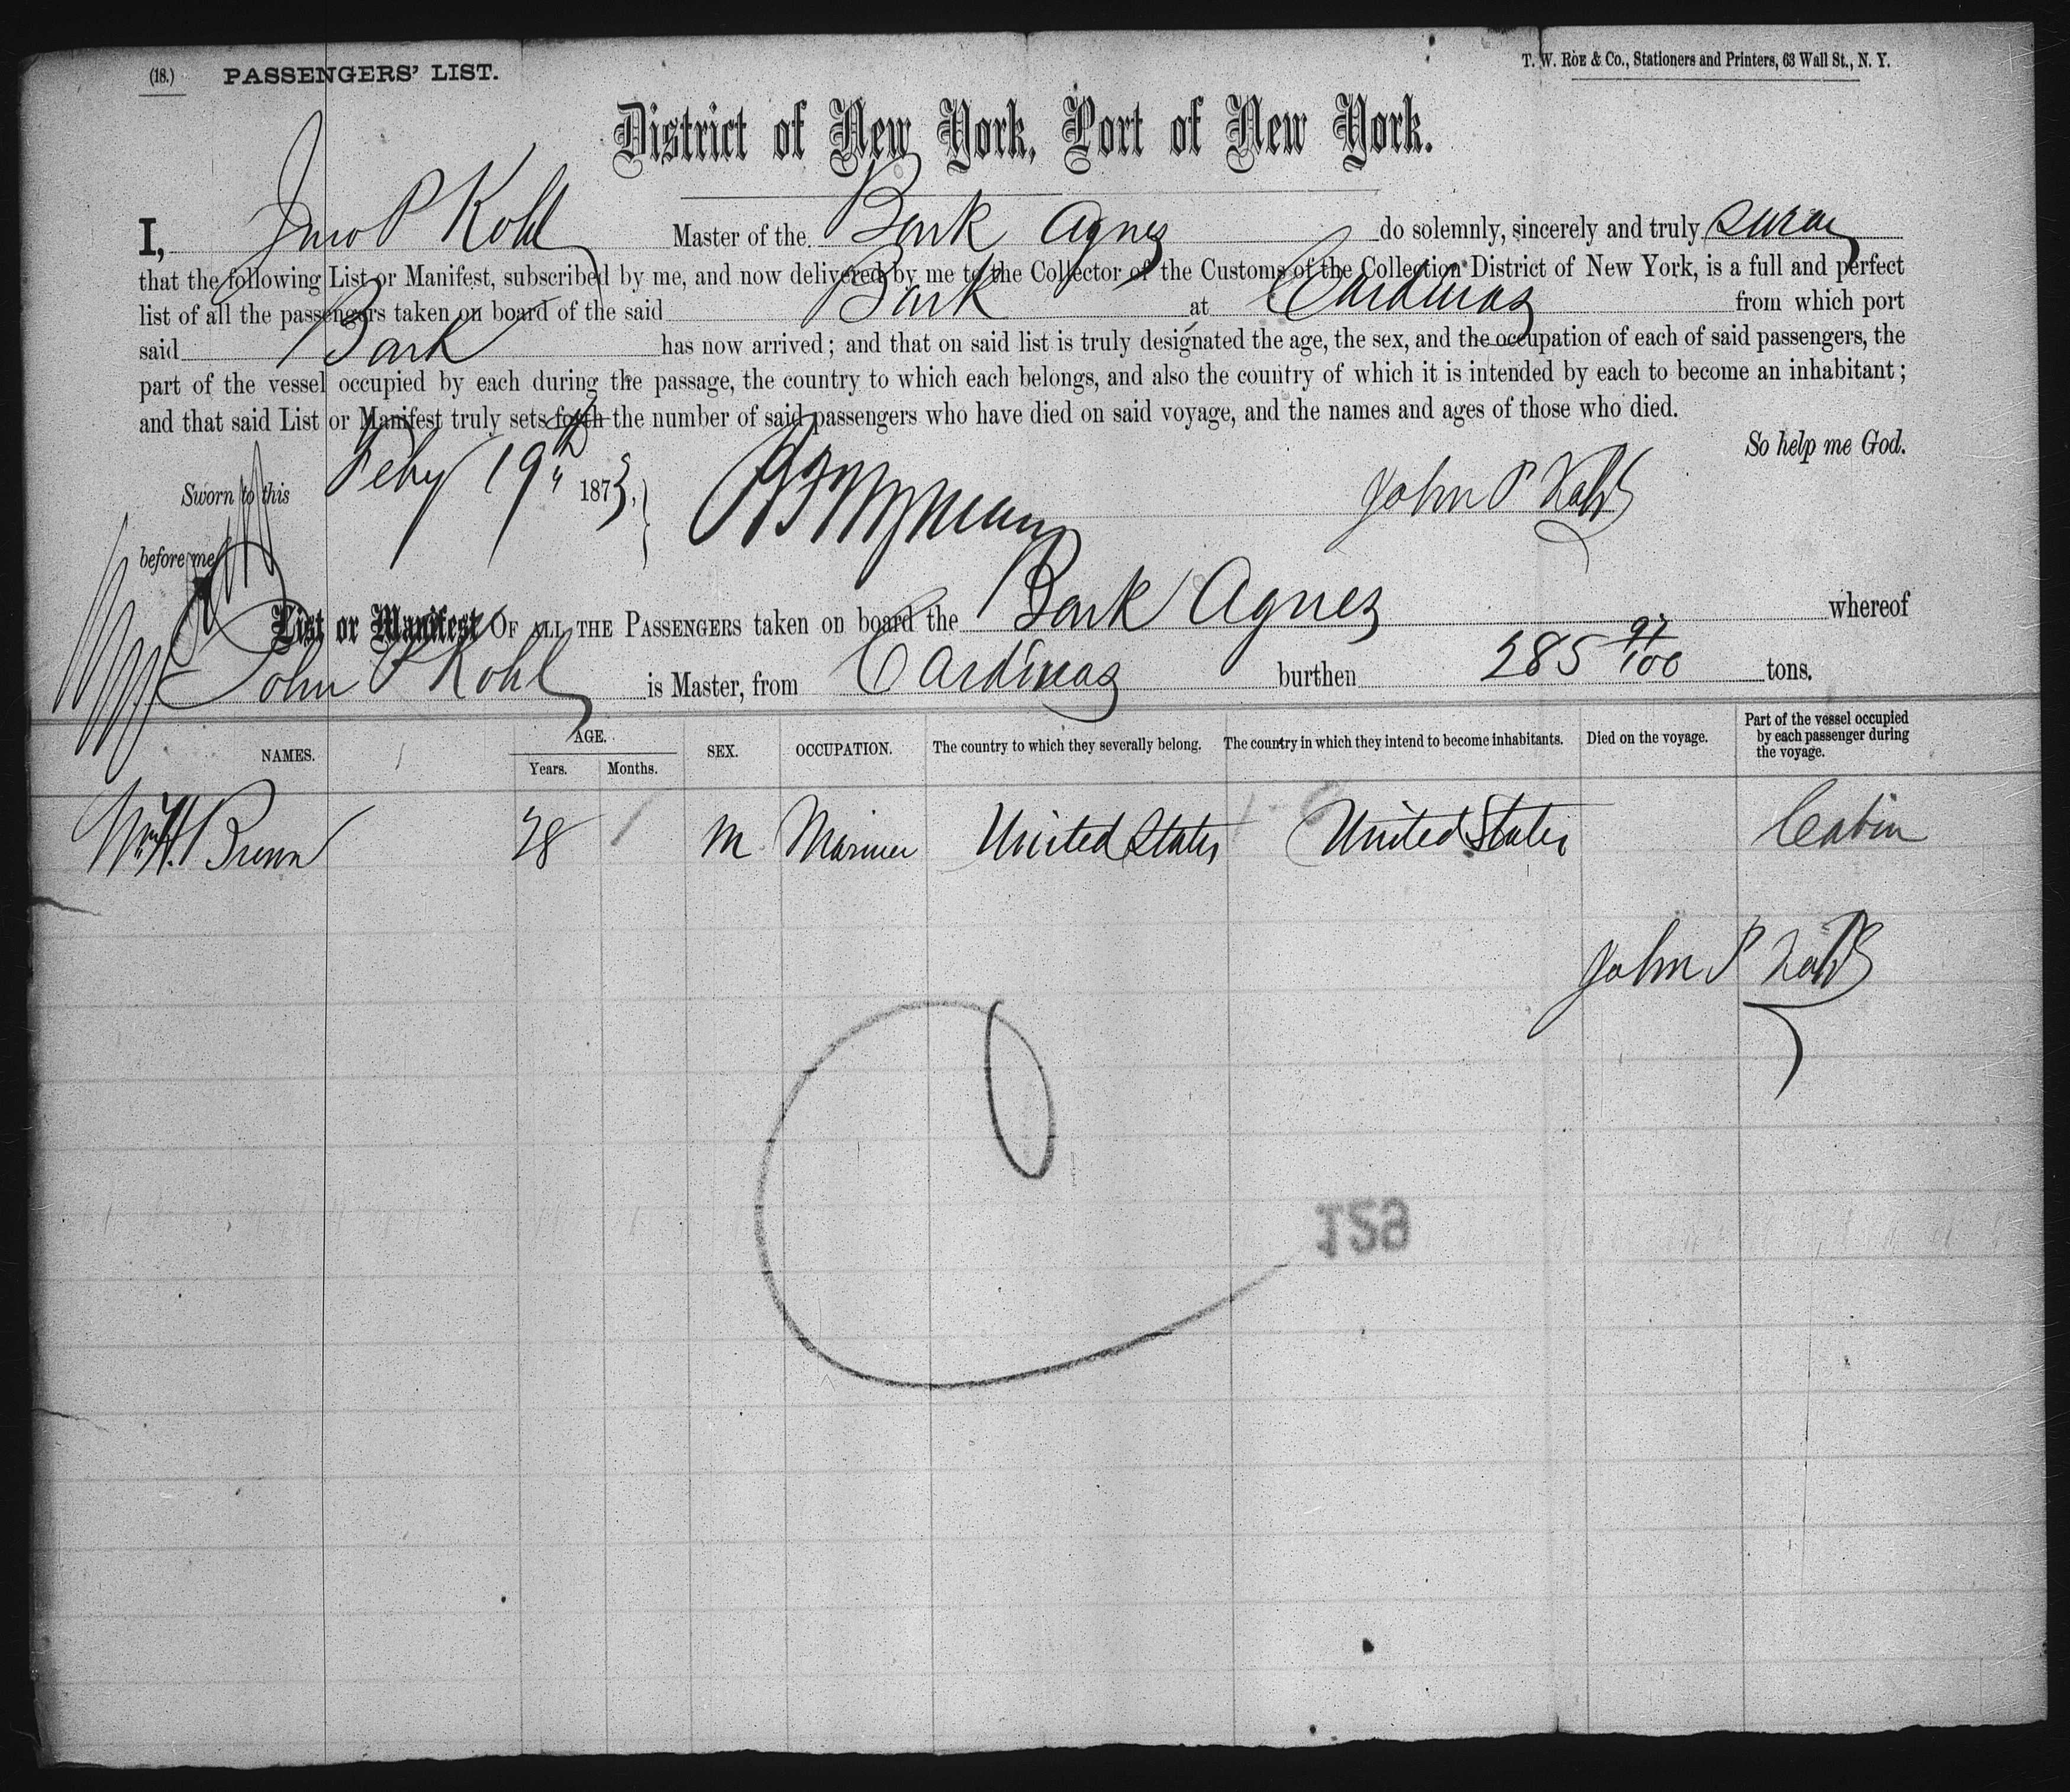 (18.) PASSENGERS' LIST.
T. W. ROE & Co., Stationers and Printers, 63 Wall St., N. Y.
District of New York, Port of New York.
I, Jno P Kohl Master of the Bark Agnes do solemnly, sincerely and truly swear
that the following List or Manifest, subscribed by me, and now delivered by me to the Collector of the Customs of the Collection District of New York, is a full and perfect
list of all the passengers taken on board of the said Bark at Cardinas from which port
said Bark has now arrived; and that on said list is truly designated the age, the sex, and the occupation of each of said passengers, the
part of the vessel occupied by each during the passage, the country to which each belongs, and also the country of which it is intended by each to become an inhabitant;
and that said List or Manifest truly sets forth the number of said passengers who have died on said voyage, and the names and ages of those who died.
So help me God.
Sworn to this Feby 19th 1873, John P Kohl
before me
List or Manifest OF ALL THE PASSENGERS taken on board the Bark Agnes whereof
John P Kohl is Master, from Cardinas burthen 285 97/100 tons.
NAMES. AGE. Years. Months. SEX. OCCUPATION. The country to which they severally belong. The country in which they intend to become inhabitants. Died on the voyage. Part of the vessel occupied by each passenger during the voyage.
Wm H. Brown 28 M Mariner United States United States Cabin
John P Kohl